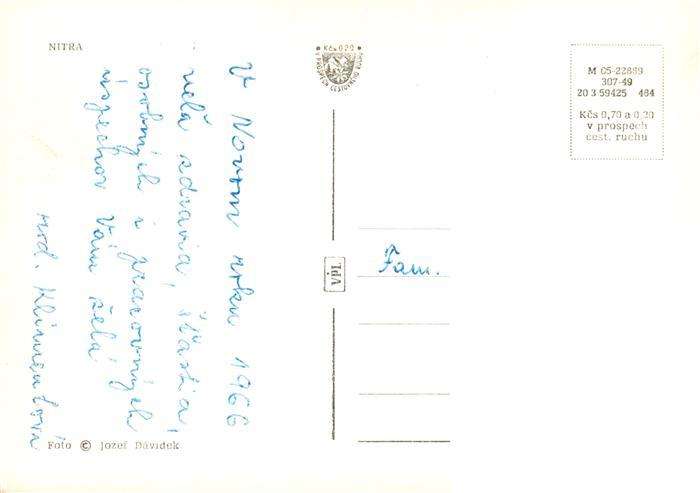 NITRA
V Novom roku 1966
veľa zdravia, šťastia,
osobných i pracovných
úspechov Vám želá
rod. Klimentová
Foto © Jozef Dávidek
Kčs 0,20
V PROSPECH CESTOVNÉHO RUCHU
VPL
Fam.
M 05-22889
307-49
20 3 59425 464
Kčs 0,70 a 0,20
v prospech
cest. ruchu